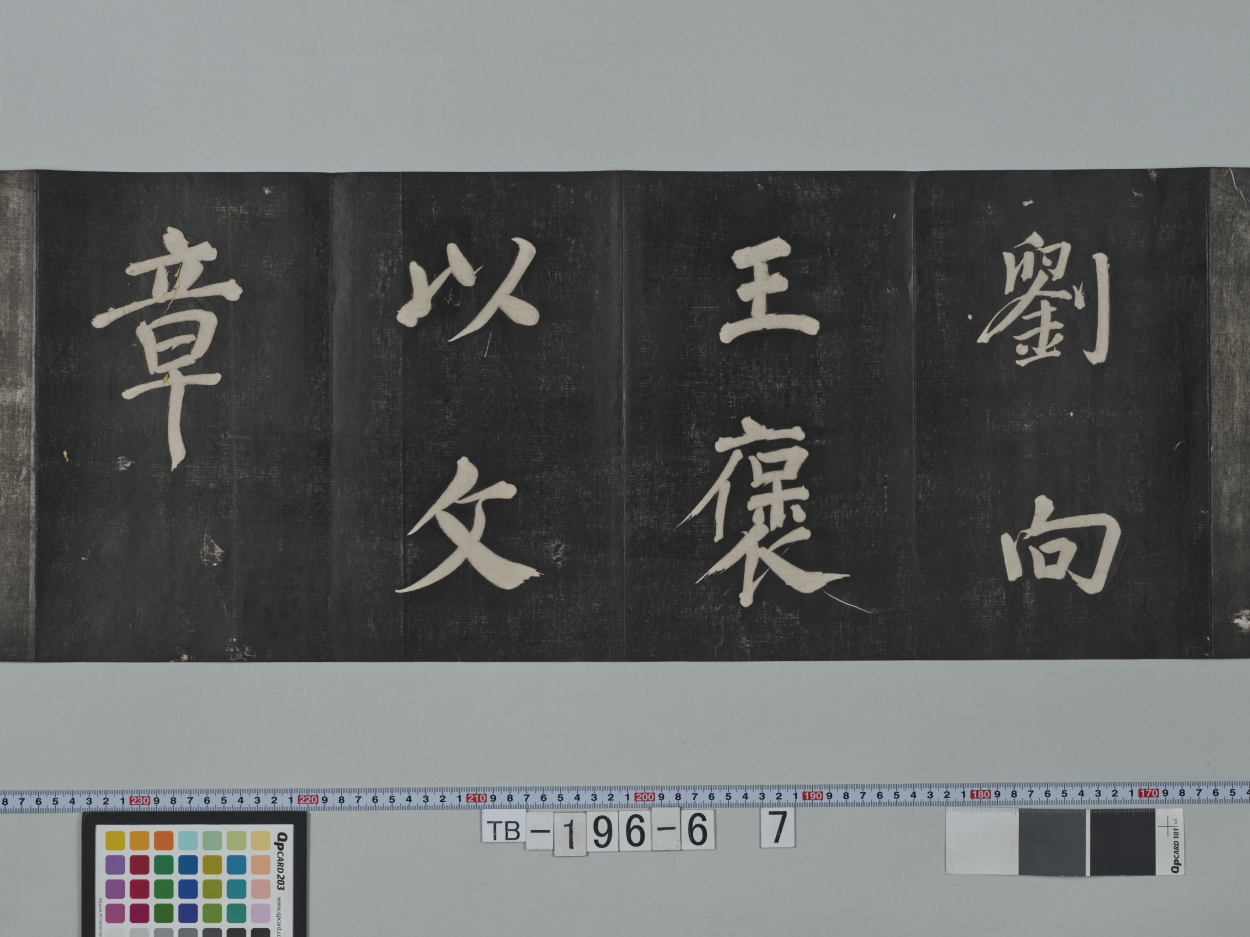 劉向
王褒
以文
章
8 7 6 5 4 3 2 1 230 9 8 7 6 5 4 3 2 1 220 9 8 7 6 5 4 3 2 1 210 9 8 7 6 5 4 3 2 1 200 9 8 7 6 5 4 3 2 1 190 9 8 7 6 5 4 3 2 1 180 9 8 7 6 5 4 3 2 1 170 9 8 7 6 5 4
TB-196-6 7
QPCARD 203
QPCARD 101